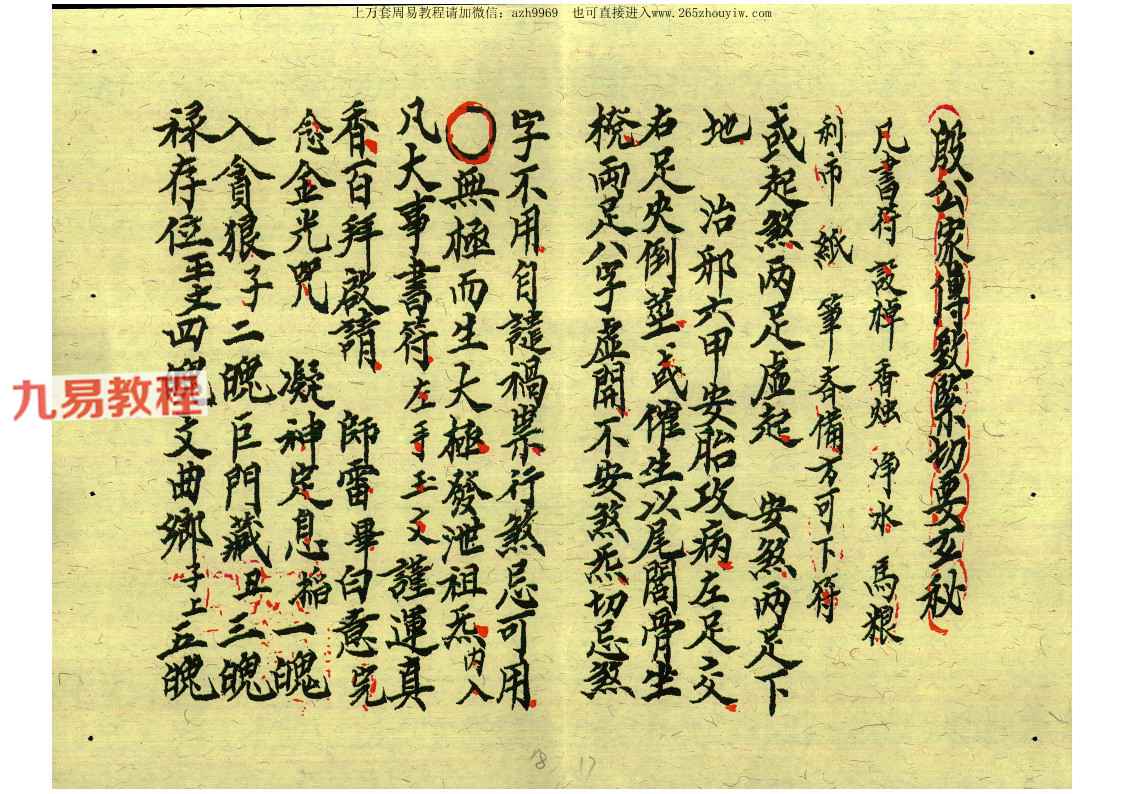 上万套周易教程请加微信：azh9969 也可直接进入www.265zhouyiw.com
殷公家傳敕緊切要玄秘
凡書符 設棹 香烛 净水 馬粮
利市 紙 筆 各備方可下符
或起煞两足虛起 安煞两足下
地 治邪六甲安胎攻病左足交
右足夾倒莖或催生以尾閭骨坐
櫈兩足八字虛開不安煞炁切忌煞
字不用自譴禍祟行煞忌可用
無極而生大極發泄祖炁内入
凡大事書符左手玉文謹運真
香百拜啟請 師雷畢白意完
念金光咒 凝神定息 一魄
入貪狼子二魄巨門藏丑三魄
禄存位 四魄文曲鄉子上五魄
九易教程
8 17